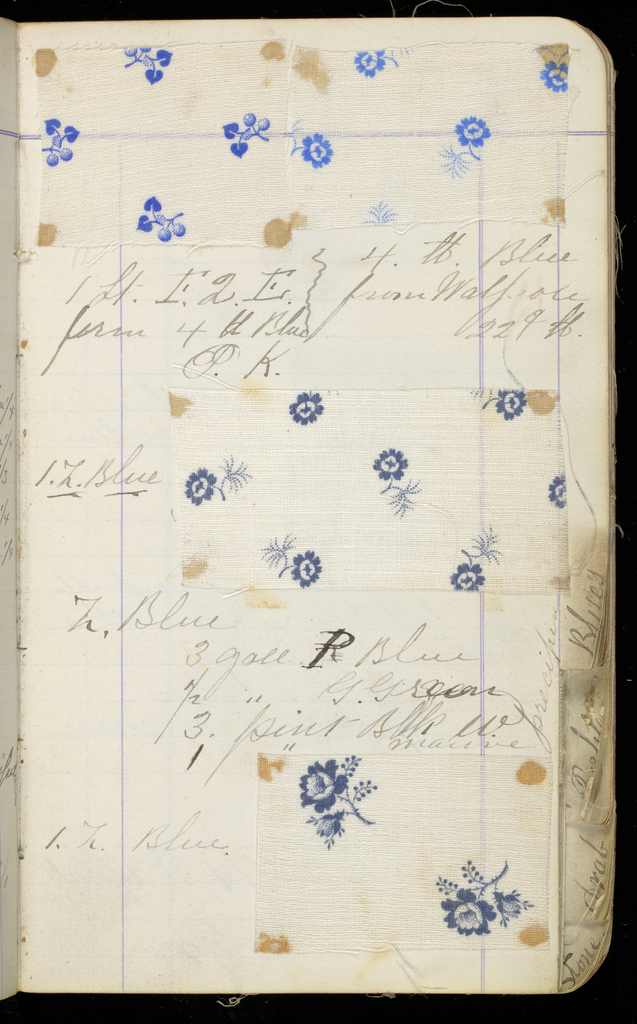 4. tt. Blue
from Walpole
229 tt.
1 Lt. I. 2 I.
form 4 tt Blue
P. K.
1. Z. Blue
Z. Blue
3 gall R Blue
½ " G. Green
3. pint Blk W.
1 " mauve
1. Z. Blue.
Blues
Drab
Stone